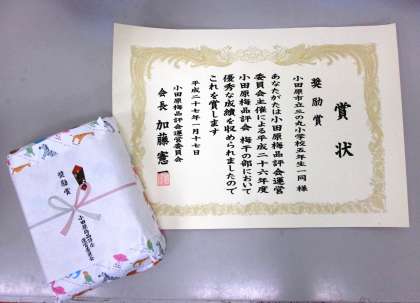 賞状
奨励賞
小田原市立三の丸小学校五年生一同 様
あなたがたは小田原梅品評会運営
委員会主催による平成二十六年度
小田原梅品評会 梅干の部において
優秀な成績を収められましたので
これを賞します
平成二十七年一月十七日
小田原梅品評会運営委員会
会長 加藤憲一
奨励賞
小田原梅品評会
運営委員会